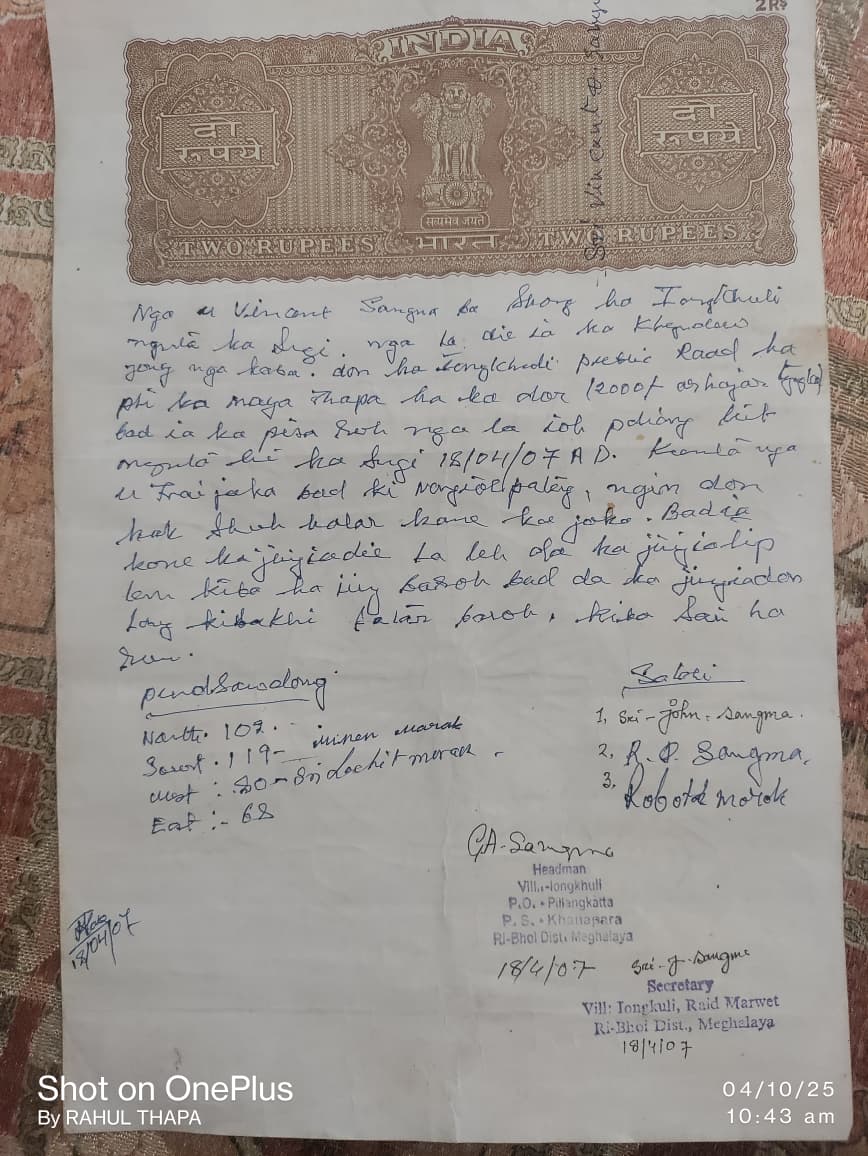 2 RS
INDIA
दो
रुपये
दो
रुपये
सत्यमेव जयते
TWO RUPEES भारत TWO RUPEES
Sri Vincent
Nga u Vincent Sangma ba Shong ha Iongkhuli
ngulā ka Sngi. nga la die ia ka Khyndew
yong nga kaba. don ha public Raad ha
phi ka maya Thapa ha ka dor 12000/ arhajar
bad ia ka pisa ruh nga la ioh pdiang kut
ngulā hi ka Sngi 18/04/07 A D. nga
u Trai jaka bad ki, ngin don
hak Shuh halar kane ka jaka. Badia
kane ka jingiadie la leh da ka jingiatip
lem kiba ha ing baroh bad da ka jingiadon
lang kibakhi baroh. kiba Soi ha
rum.
pundSawdong
North. 102.
119- minen marak
west : 80 - Sri Lochit marak
East :- 68
Sakhi
1, Sri - John. Sangma.
2, R. D. Sangma,
3. marak
GA-Sangma
Headman
Vill.-Iongkhuli
P.O. - Pillangkatta
P. S. - Khanapara
RI-Bhoi Dist. Meghalaya
18/4/07
Sri-J-Sangma
Secretary
Vill: Iongkuli, Raid Marwet
Ri-Bhoi Dist., Meghalaya
18/4/07
18/04/07
Shot on OnePlus
By RAHUL THAPA
04/10/25
10:43 am